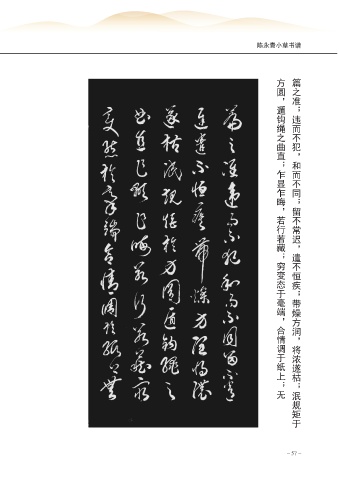 陈永贵小草书谱
篇之准；违而不犯，和而不同；留不常迟，遣不恒疾；带燥方润，将浓遂枯；泯规矩于
方圆，遁钩绳之曲直；乍显乍晦，若行若藏；穷变态于毫端，合情调于纸上；无
篇之准違而不犯和而不同留不常
遲遣不恒疾帶燥方潤將濃
遂枯泯規矩於方圓遁鉤繩之
曲直乍顯乍晦若行若藏窮
變態於毫端合情調於紙上無
– 57 –